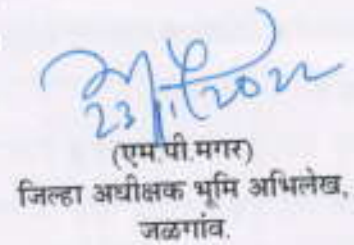 23/11/2022
(एम.पी.मगर)
जिल्हा अधीक्षक भूमि अभिलेख,
जळगांव.